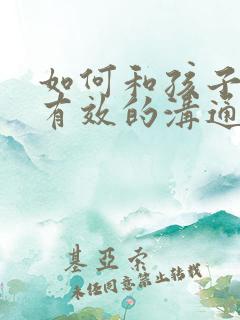 如何和孩子
有效的溝通
基亞索
未经同意禁止转载